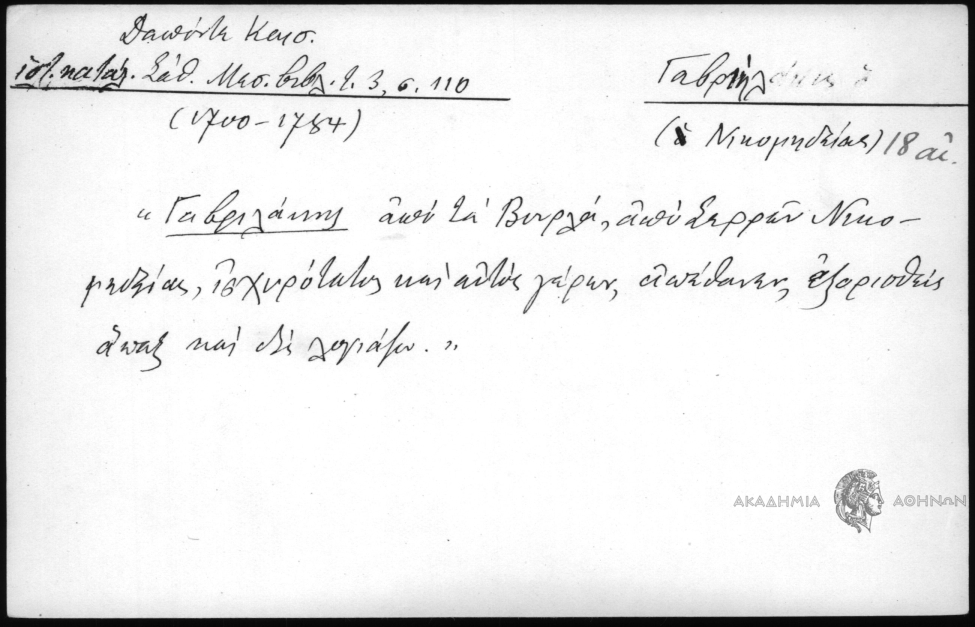 Δαπόντε Καισ.
ἱστ. κατάλ. Σάθ. Μεσ. βιβλ. τ. 3, σ. 110
(1700 - 1784)
Γαβριηλάκης ὁ
(ὁ Νικομηδείας) 18 αἰ.
« Γαβριλάκης ἀπό τά Βουρλά, ἀπό Σερρῶν Νικο-
μηδείας, ἰσχυρότατος καί αὐτός γέρων, ἀπέθανεν, ἐξορισθείς
ἅπαξ καί δίς λογιάζω. »
ΑΚΑΔΗΜΙΑ ΑΘΗΝΩΝ